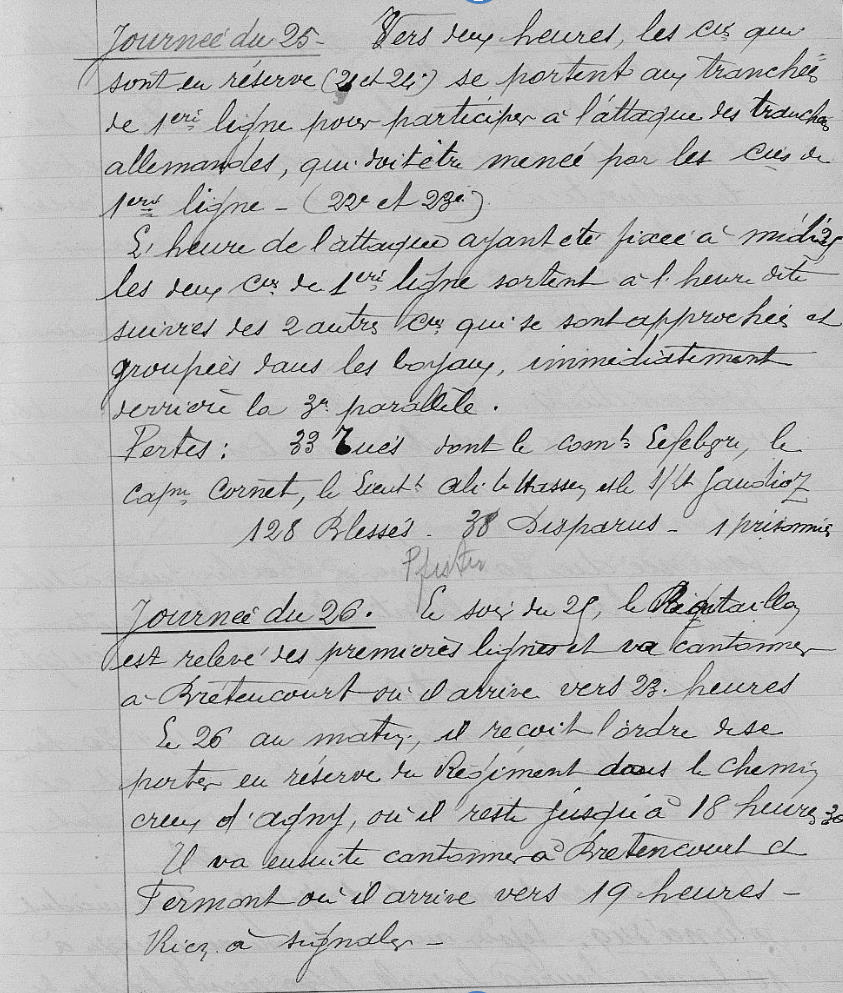 Journée du 25 - Vers deux heures, les Cies qui
sont en réserve (21 et 24e) se portent aux tranchées
de 1ère ligne pour participer à l'attaque des tranchées
allemandes, qui doit être menée par les Cies de
1ère ligne - (22e et 23e)
L'heure de l'attaque ayant été fixée à midi 25
les deux Cies de 1ère ligne sortent à l'heure dite
suivies des 2 autres Cies qui se sont approchées et
groupées dans les boyaux, immédiatement
derrière la 3e parallèle.
Pertes : 33 Tués dont le comt Lefebvre, le
capne Cornet, le Lieutt Ali le Hassen et le S/Lt Gaudioz
128 Blessés - 38 Disparus - 1 prisonnier
Pfister
Journée du 26. Le soir du 25, le Bataillon
est relevé des premières lignes et va cantonner
à Bretencourt où il arrive vers 23 heures
Le 26 au matin, il reçoit l'ordre de se
porter en réserve du Régiment dans le chemin
creux d'Agny, où il reste jusqu'à 18 heures 30
Il va ensuite cantonner à Bretencourt et
Fermont où il arrive vers 19 heures -
Rien à signaler -